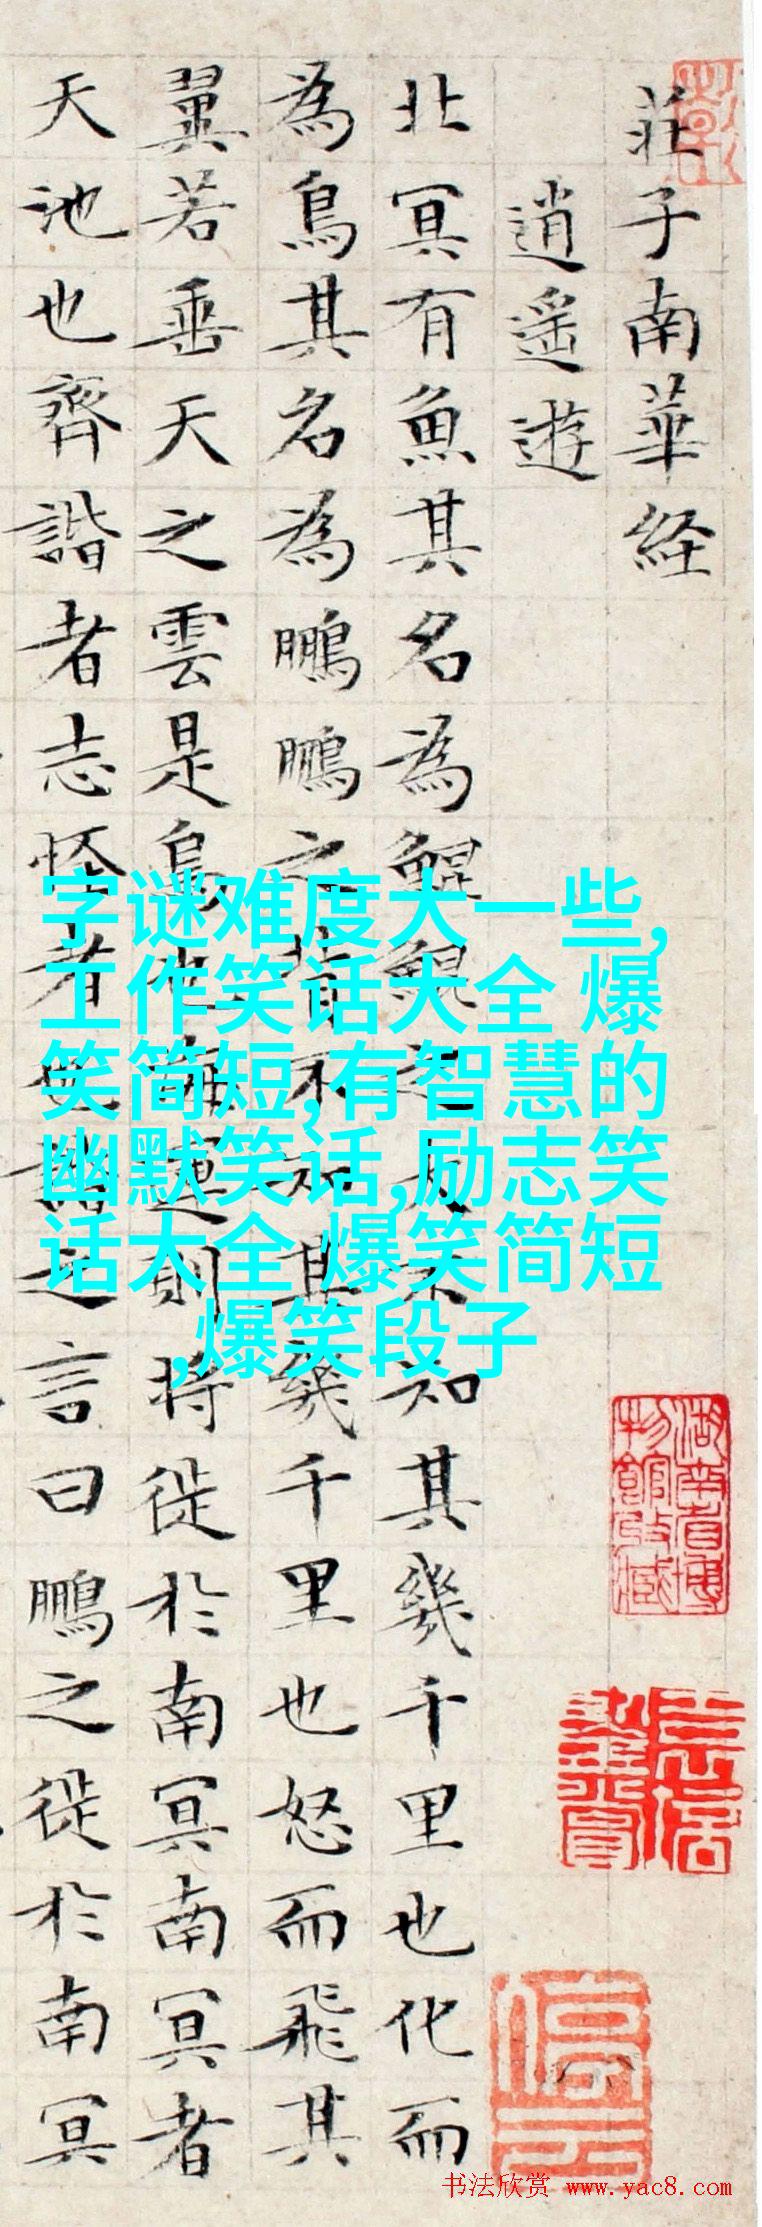 莊子南華経
逍遙遊
北冥有魚其名為鯤鯤之大不知其幾千里也化而
為鳥其名為鵬鵬之背不知其幾千里也怒而飛其
翼若垂天之雲是鳥也海運則將徙於南冥南冥者
天池也齊諧者志怪者也諧之言曰鵬之徙於南冥
字谜难度大一些,
工作笑话大全 爆
笑简短,有智慧的
幽默笑话,励志笑
话大全 爆笑简短
,爆笑段子
湖南省博
物館收藏
书法欣赏 www.yac8.com